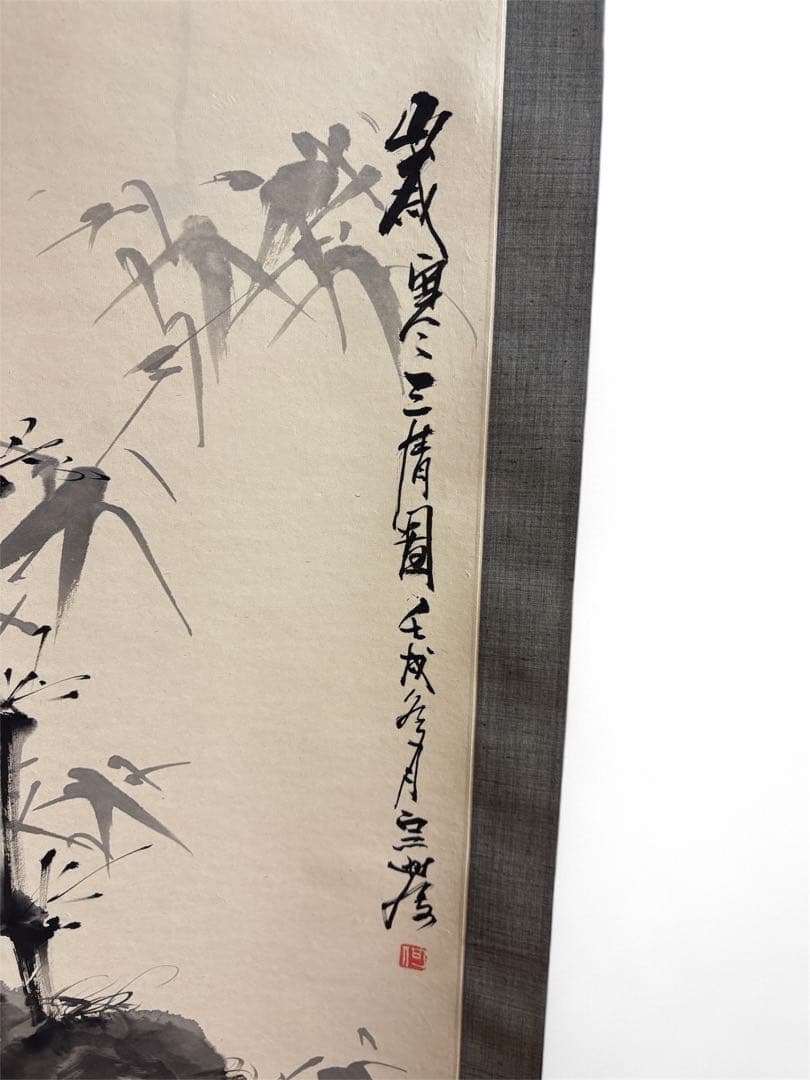 歲寒三清圖壬戌冬月
何